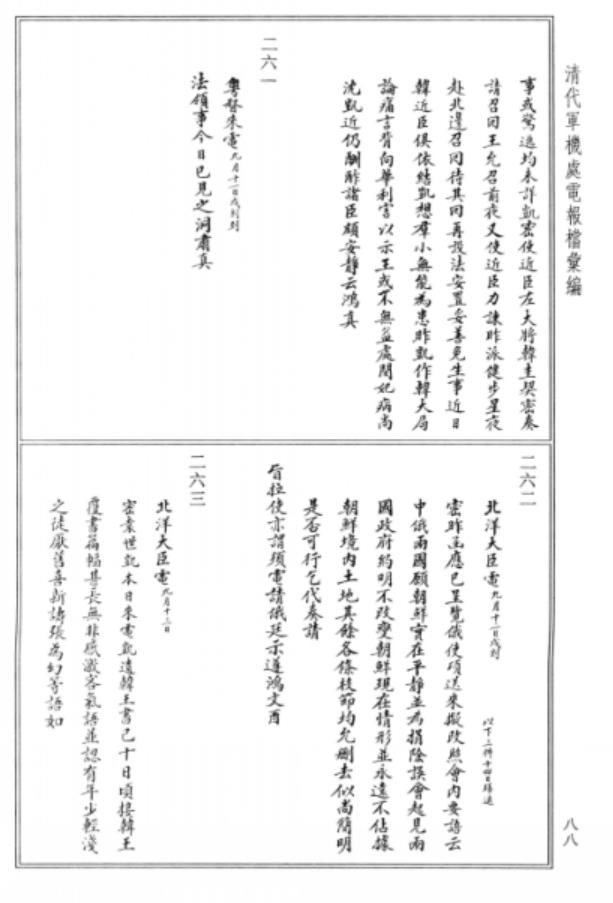 清代軍機處電報檔彙編
八八
事或驚逃均未詳凱密使近臣左大將韓圭卨密奏
請召回王允召前夜又使近臣力諫昨派健步星夜
赴北邊召回待其回再設法安置妥善免生事近日
韓近臣俱依結凱想羣小無能為患昨凱作韓大局
論痛言背向華利害以示王或不無益處閔妃病尚
沈凱近仍酬酢諸臣頗安靜云鴻真
二六一
粵督來電九月十一日戌刻到
法領事今日已見之洞肅真
二六二
北洋大臣電九月十一日戌刻
以下三件十四日歸遞
密昨函應已呈覽俄使頃送來擬改照會內要語云
中俄兩國願朝鮮實在平靜並為捐除誤會起見兩
國政府約明不改變朝鮮現在情形並永遠不佔據
朝鮮境內土地其餘各條枝節均允刪去似尚簡明
是否可行乞代奏請
旨拉使亦謂須電請俄廷示遵鴻文酉
二六三
北洋大臣電九月十三日
密袁世凱本日來電凱遺韓王書已十日頃接韓王
覆書篇幅甚長無非感激客氣語並認有年少輕淺
之徒厭舊喜新譸張為幻等語如